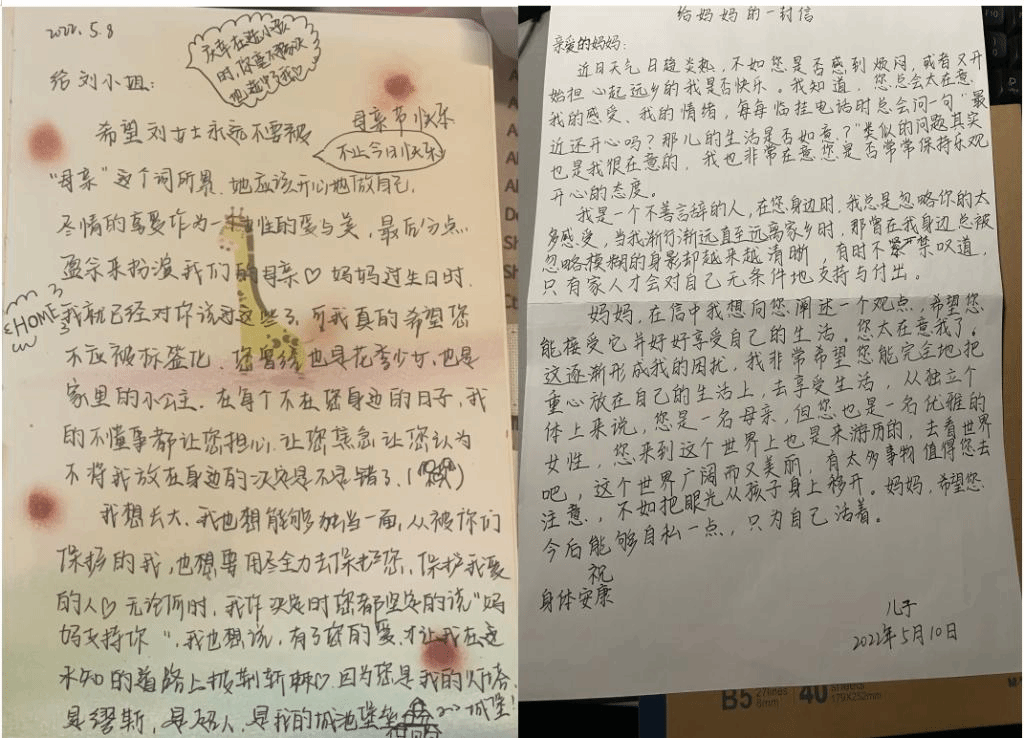 2022.5.8
庆幸在选小孩
时,你毫不犹豫
地选中了我♡
给刘小姐:
母亲节快乐
不止今日快乐
希望刘女士永远不要被
“母亲”这个词所累.她应该开心地做自己,
尽情的享受作为一个女性的爱与美,最后分点
盈余来扮演我们的母亲♡妈妈过生日时.
HOME
我就已经对你说过这些了,可我真的希望您
不应被标签化.您曾经也是花季少女,也是
家里的小公主.在每个不在您身边的日子,我
的不懂事都让您担心.让您焦急让您认为
不将我放在身边的决定是不是错了.(
我想长大.我也想能够独当一面,从被你们
保护的我,也想要用尽全力去保护您,保护我爱
的人♡无论何时,我作决定时您都坚定的说“妈
妈支持你”,我也想说,有了您的爱.才让我在这
未知的道路上披荆斩棘♡因为您是我的灯塔.
是缪斯,是超人,是我的城池堡垒
城堡!
给妈妈的一封信
亲爱的妈妈:
近日天气日趋炎热,不如您是否感到烦闷,或者又开
始担心起远乡的我是否快乐。我知道,您总会太在意
我的感受、我的情绪,每每临挂电话时总会问一句“最
近还开心吗?那儿的生活是否如意?”类似的问题其实
也是我很在意的,我也非常在意您是否常常保持乐观
开心的态度。
我是一个不善言辞的人,在您身边时,我总是忽略你的太
多感受,当我渐行渐远直至远离家乡时,那曾在我身边总被
忽略模糊的身影却越来越清晰,有时不禁叹道,
只有家人才会对自己无条件地支持与付出。
妈妈,在信中我想向您阐述一个观点,希望您
能接受它并好好享受自己的生活。您太在意我了。
这逐渐形成我的困扰,我非常希望您能完全地把
重心放在自己的生活上,去享受生活,从独立个
体上来说,您是一名母亲,但您也是一名优雅的
女性,您来到这个世界上也是来游历的,去看世界
吧,这个世界广阔而又美丽,有太多事物值得您去
注意,不如把眼光从孩子身上移开。妈妈,希望您
今后能够自私一点,只为自己活着。
祝
身体安康
儿子
2022年5月10日
B5 27lines 8mm 40 sheets 179X252mm